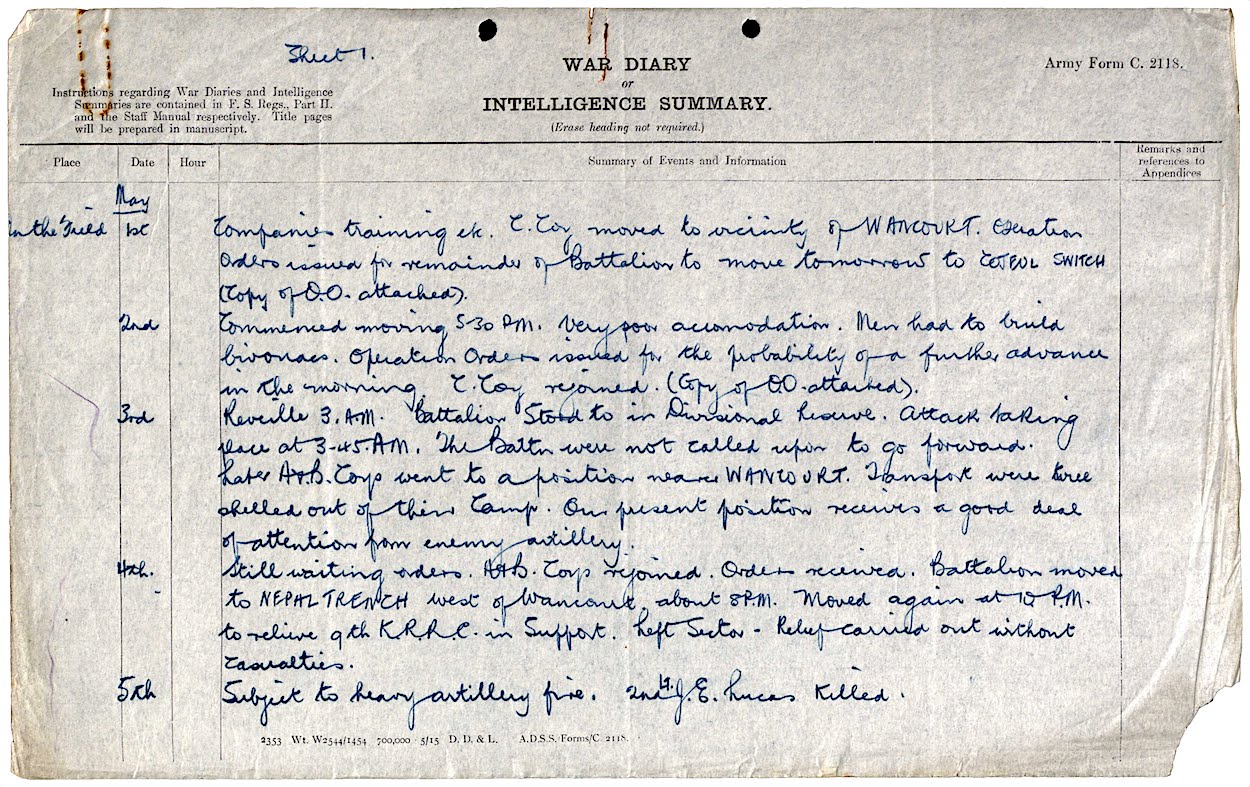 Sheet 1.
WAR DIARY
or
INTELLIGENCE SUMMARY.
(Erase heading not required.)
Army Form C. 2118.
Instructions regarding War Diaries and Intelligence
Summaries are contained in F. S. Regs., Part II.
and the Staff Manual respectively. Title pages
will be prepared in manuscript.
Place Date Hour Summary of Events and Information Remarks and
references to
Appendices
May
In the Field 1st Companies training etc. C. Coy moved to vicinity of WANCOURT. Operation
Orders issued for remainder of Battalion to move tomorrow to COJEUL SWITCH
(Copy of O.O. attached).
2nd Commenced moving 5-30 P.M. Very poor accomodation. Men had to build
bivouacs. Operation Orders issued for the probability of a further advance
in the morning. C. Coy rejoined. (Copy of O.O. attached).
3rd Reveille 3. A.M. Battalion Stood to in Divisional Reserve. Attack taking
place at 3-45. A.M. The Battn were not called upon to go forward.
Later A+B. Coys went to a position nearer WANCOURT. Transport were
shelled out of their Camp. Our present position receives a good deal
of attention from enemy artillery.
4th. Still waiting orders. A+B. Coys rejoined. Orders received. Battalion moved
to NEPAL TRENCH west of Wancourt, about 8 P.M. Moved again at 10 P.M.
to relieve 9th K.R.R.C. in Support. Left Sector - Relief carried out without
casualties.
5th Subject to heavy artillery fire. 2nd Lt. J. E. Lucas Killed.
2353 Wt. W2544/1454 700,000 5/15 D. D. & L. A.D.S.S. Forms/C. 2118.